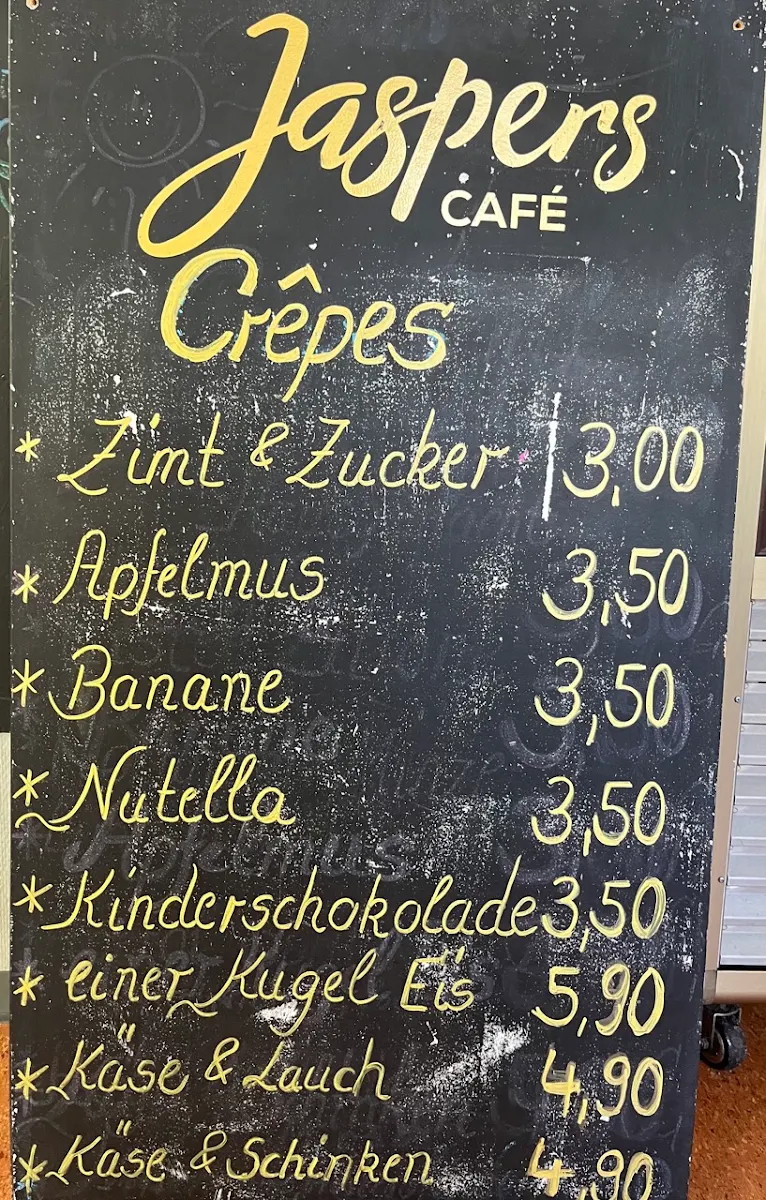 Jaspers
CAFÉ
Crêpes
* Zimt & Zucker 3,00
* Apfelmus 3,50
* Banane 3,50
* Nutella 3,50
* Kinderschokolade 3,50
* einer Kugel Eis 5,90
* Käse & Lauch 4,90
* Käse & Schinken 4,90